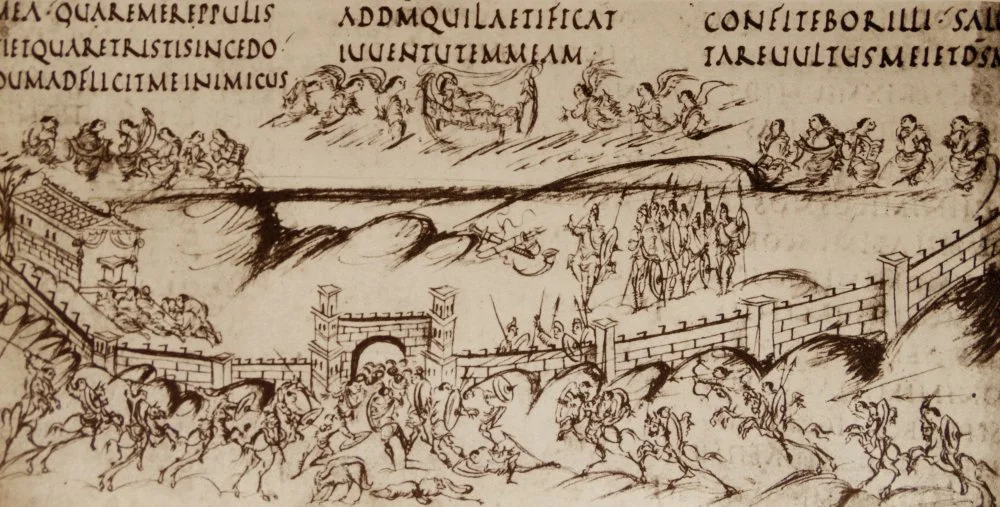 MEA·QUAREMEREPPULIS
TIETQUARETRISTISINCEDO·
DUMADFLIGITMEINIMICUS
ADDMQUILAETIFICAT
IUUENTUTEMMEAM·
CONFITEBORILLI·SALU
TAREUULTUSMEIETDSM